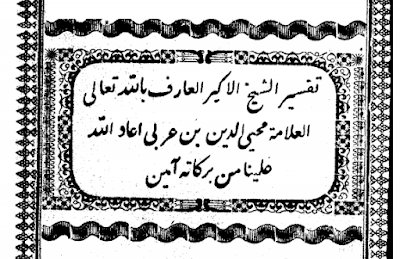 تفسير الشيخ الاكبر العارف بالله تعالى
العلامة محيى الدين بن عربى اعاد الله
علينا من بركاته آمين